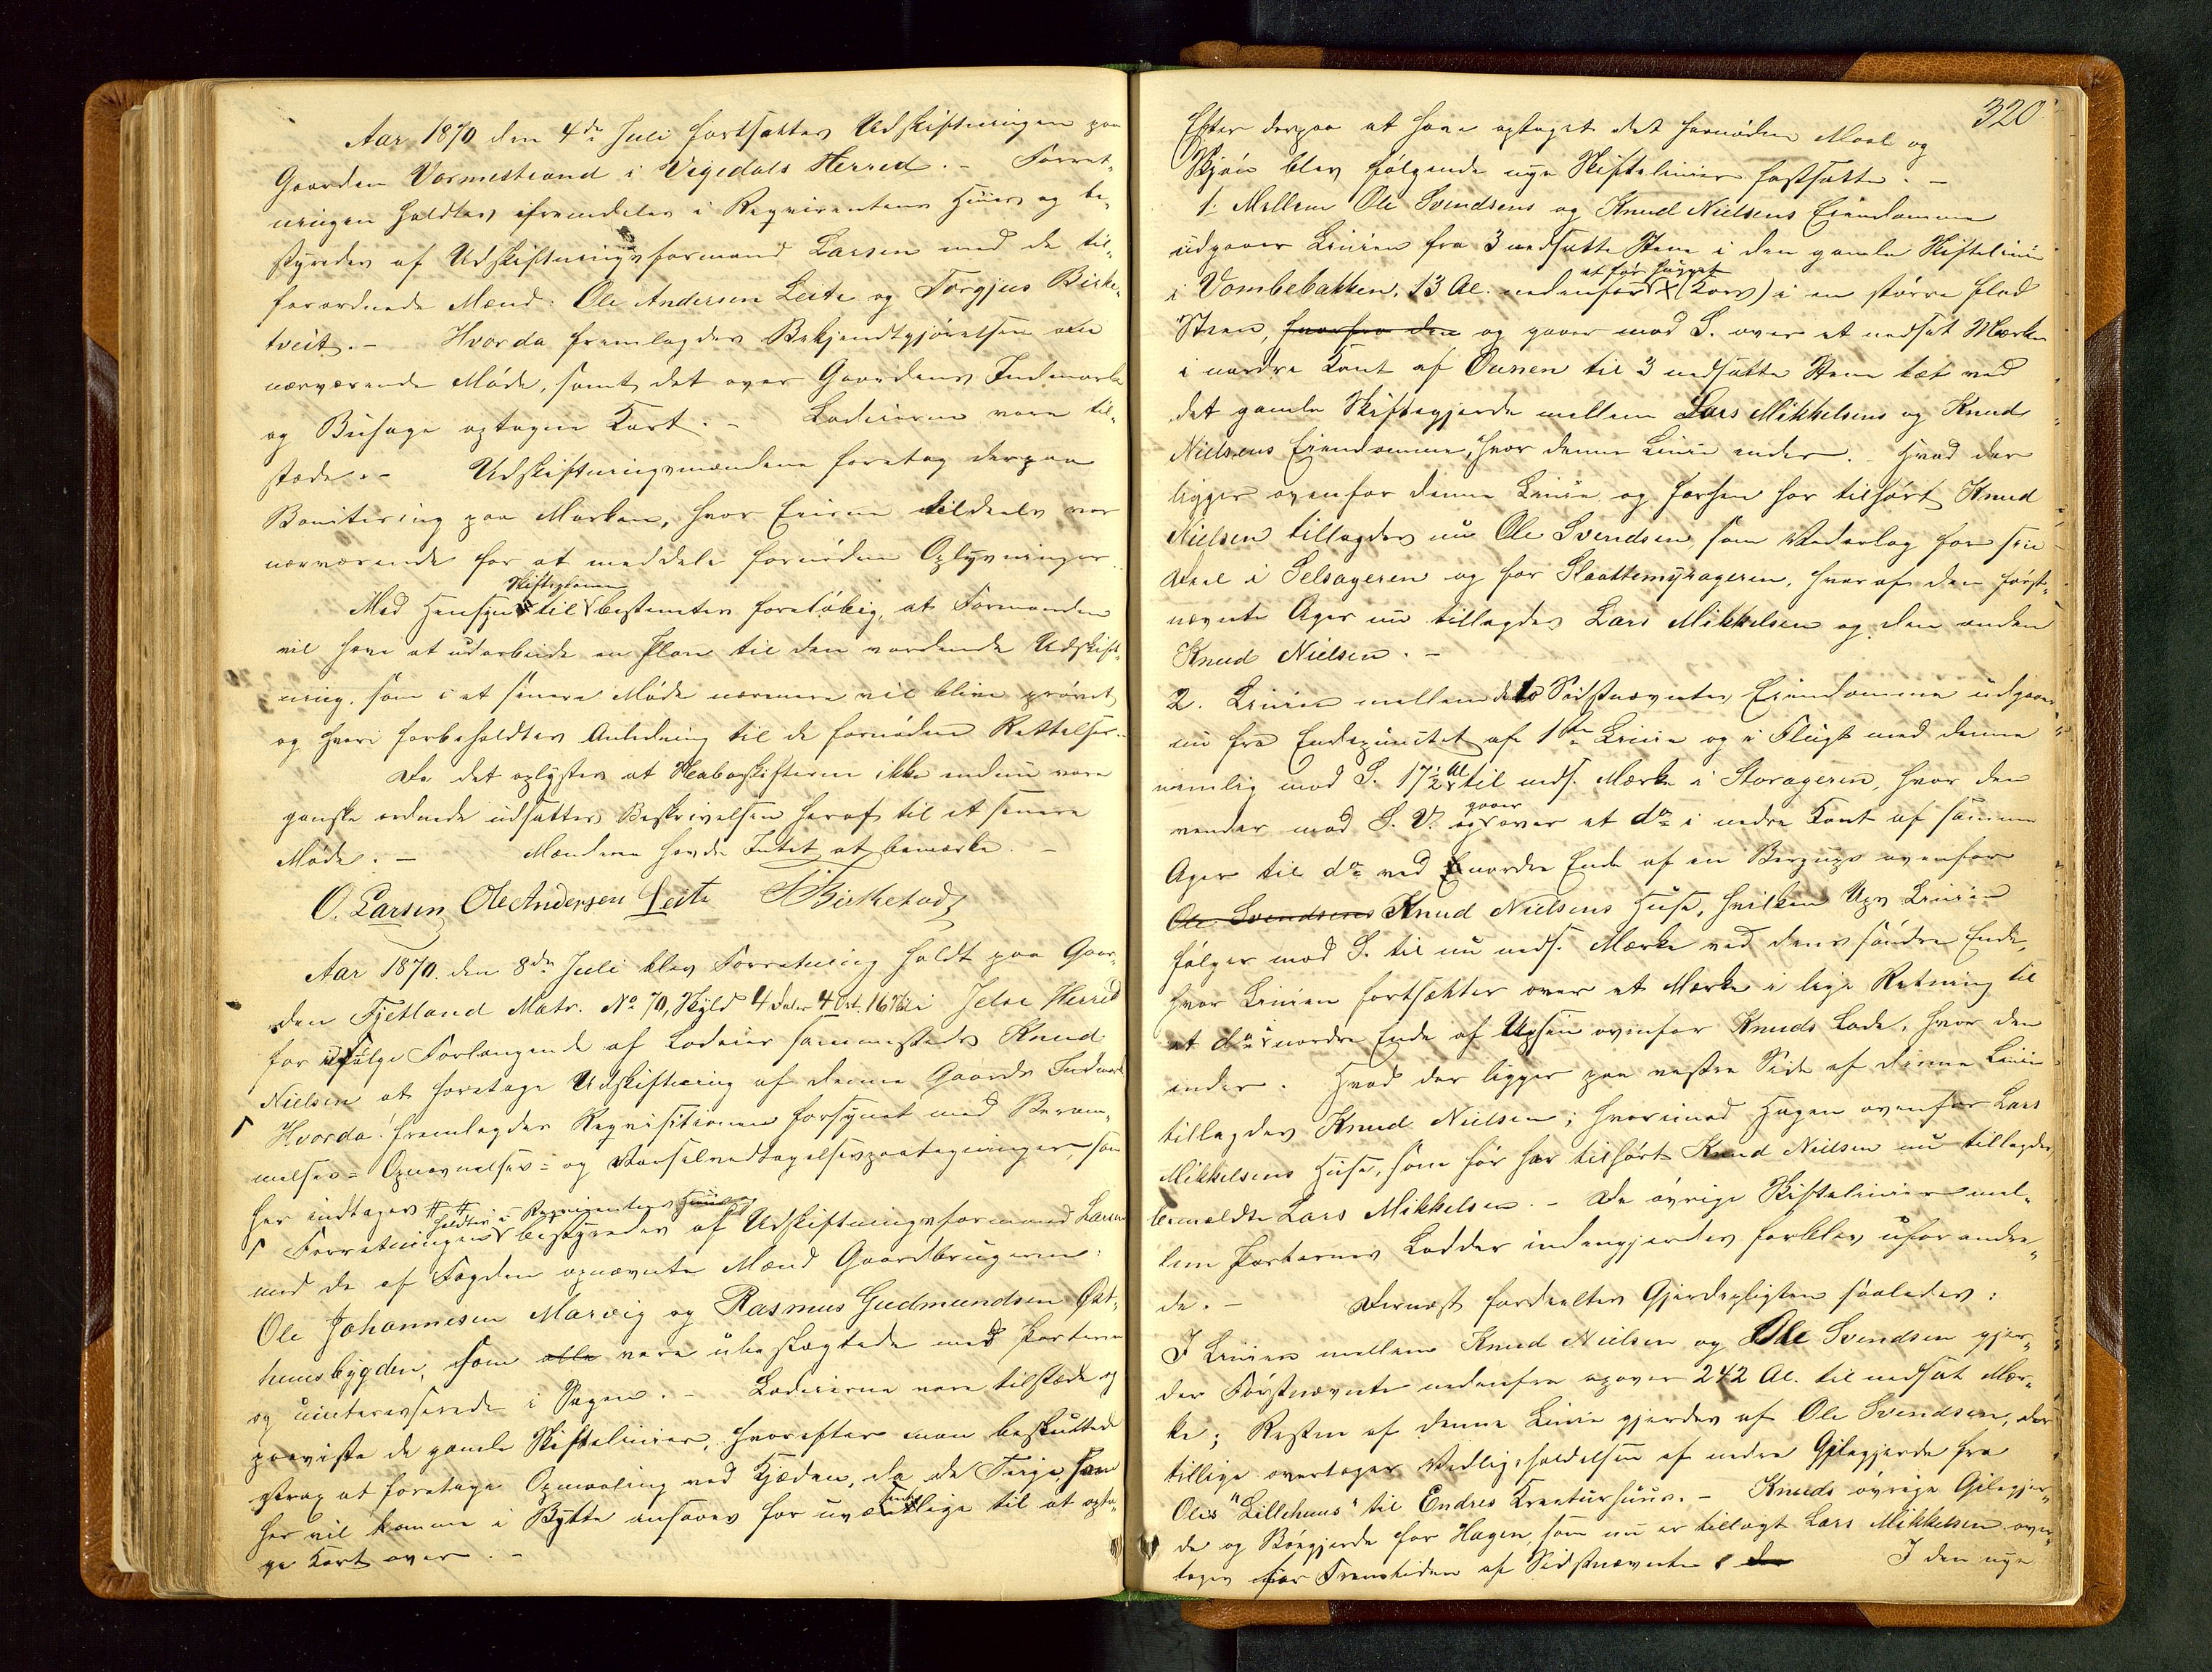 Aar 1870 den 4de Juli fortsattes Udskiftningen paa
Gaarden Vormestrand i Vigedals Herred. – Forret-
ningen holdtes ifremdeles i Reqvirentens Huus og be-
styredes af Udskiftningsformand Larsen med de til-
forordnede Mænd: Ole Andersen Leite og Torgjus Birke-
tveit. – Hvorda fremlagdes Bekjendtgjørelsen om
nærværende Møde, samt det over Gaardens Indmark
og Buhage optagne Kart. – Lodeierne vare til-
stede. – Udskiftningsmændene foretog derpaa
Bonitering paa Marken, hvor Eierne tildeels var
nærværende for at meddele fornødne Oplysninger.
Skifteplanen
Med Hensyn til bestemtes foreløbig, at Formanden
vil have at udarbeide en Plan til den vordende Udskift-
ning, som i et senere Møde nærmere vil blive prøvet
og hvori forbeholdtes Anledning til de fornødne Rettelser. –
Da det oplystes at Naboskifterne ikke endnu vare
ganske ordnede udsattes Beskrivelsen heraf til et senere
Møde. – Mændene havde Intet at bemærke. –
O. Larsen Ole Andersen Leite T Birketvedt
Aar 1870. den 8de Juli blev Forretning holdt paa Gaar-
den Fjetland Matr. No 70, Skyld 4 Daler 4 Ort. 16 Sk i Jelse Herred
for ifølge Forlangende af Lodeier sammesteds Knud
Nielsen at foretage Udskiftning af denne Gaards Indmark
Hvorda: fremlagdes Reqvisitionen forsynet med Beram-
melses- Opnævnelses- og Varselvedtagelsespaategninger, som
her indtages # #
holdtes i Reqvirentens Huus og
Forretningen bestyredes af Udskiftningsformand Larsen
med de af Fogden opnævnte Mænd Gaardbrugerne:
Ole Johannesen Marvig og Rasmus Gudmundsen Øst-
hunsbygden, som alle vare ubeslægtede med Parterne
og uinteresserede i Sagen. – Lodeierne vare tilstede og
paaviste de gamle Skiftelinier, hvorefter man besluttede
strax at foretage Opmaaling ved Kjæden, da de Teige, som
her vil komme i Bytte ansaaes for uvæsentlige til at opta-
ge Kart over. –
320
Efter derpaa at have optaget det fornødne Maal og
Skjøn blev følgende nye Skiftelinier fastsatte. –
1. Mellem Ole Svendsens og Knud Nielsens Eiendomme
udgaaer Linien fra 3 nedsatte Stene i den gamle Skiftelinie
et før hugget
i Vombebakken, 13 Al. nedenfor X (Kors) i en større flad
Steen, hvorfra den og gaaer mod S. over et nedsat Mærke
i nordre Kant af Ousen til 3 nedsatte Stene tæt ved
det gamle Skiftegjærde mellem Lars Mikkelsens og Knud
Nielsens Eiendomme, hvor denne Linie ender. – Hvad der
ligger ovenfor denne Linie og førhen har tilhørt Knud
Nielsen tillagdes nu Ole Svendsen, som Vederlag for sin
Deel i Selsageren og for Slaattemyrageren, hvoraf den først-
nævnte Ager nu tillagdes Lars Mikkelsen og den anden
Knud Nielsen. –
2. Linien mellem de to Sidstnævntes Eiendomme udgaaer
nu fra Endepunctet af 1ste Linie og i Flugt med denne
nemlig mod S. 17½ Al til neds. Mærke i Storageren, hvor den
gaaer
vender mod S. V. og over et do i nedre Kant af samme
Ager til do ved nordre Ende af en Bergups ovenfor
Ole Svendsens Knud Nielsens Huse, hvilken Ups Linien
følger mod S. til nu neds. Mærke ved dens søndre Ende,
hvor Linien fortsætter over et Mærke i lige Retning til
et do i nordre Ende af Upsen ovenfor Knuds Lade, hvor den
ender. Hvad der ligger paa vestre Side af denne Linie
tillagdes Knud Nielsen; hvorimod Hagen ovenfor Lars
Mikkelsens Huse, som før har tilhørt Knud Nielsen nu tillagdes
bemeldte Lars Mikkelsen. – De øvrige Skiftelinier mel-
lem Parternes Lodder indengjerdes forblev uforandre-
de. – Dernæst fordeeltes Gjerdepligten saaledes:
I Linien mellem Knud Nielsen og Ole Svendsen gjer-
der Førstnævnte nedenfra opover 242 Al. til nedsat Mær-
ke; Resten af denne Linie gjerdes af Ole Svendsen, der
tillige overtager Vedligeholdelsen af nedre Gilegjerde fra
Oles "Lillehuus" til Endres Kreaturhuus. – Knuds øvrige Gilegjer-
de og Bøegjerde for Hagen, som nu er tillagt Lars Mikkelsen over-
tages for Fremtiden af Sidstnævnte. der I den nye